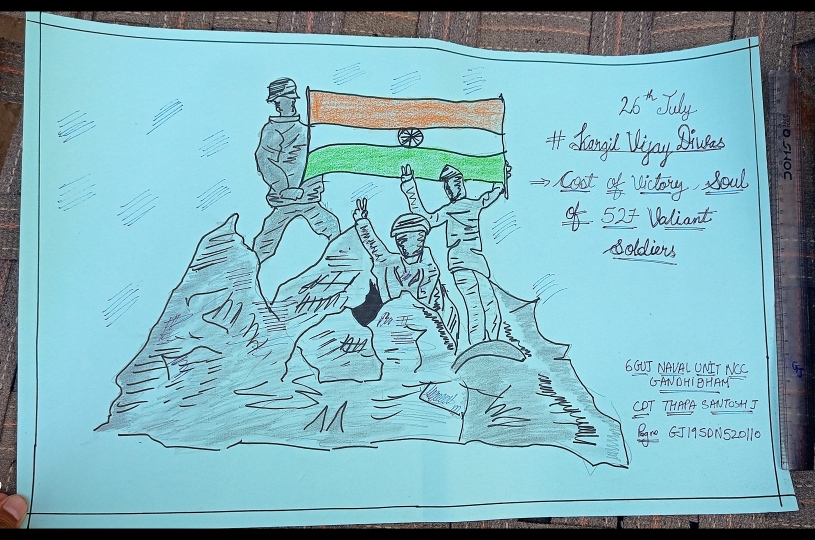 26th July
# Kargil Vijay Diwas
→ Cost of Victory, Soul
of 527 Valiant
Soldiers
6GUJ NAVAL UNIT NCC
GANDHIDHAM
CDT THAPA SANTOSH J
Reg no GJ19SDN520110